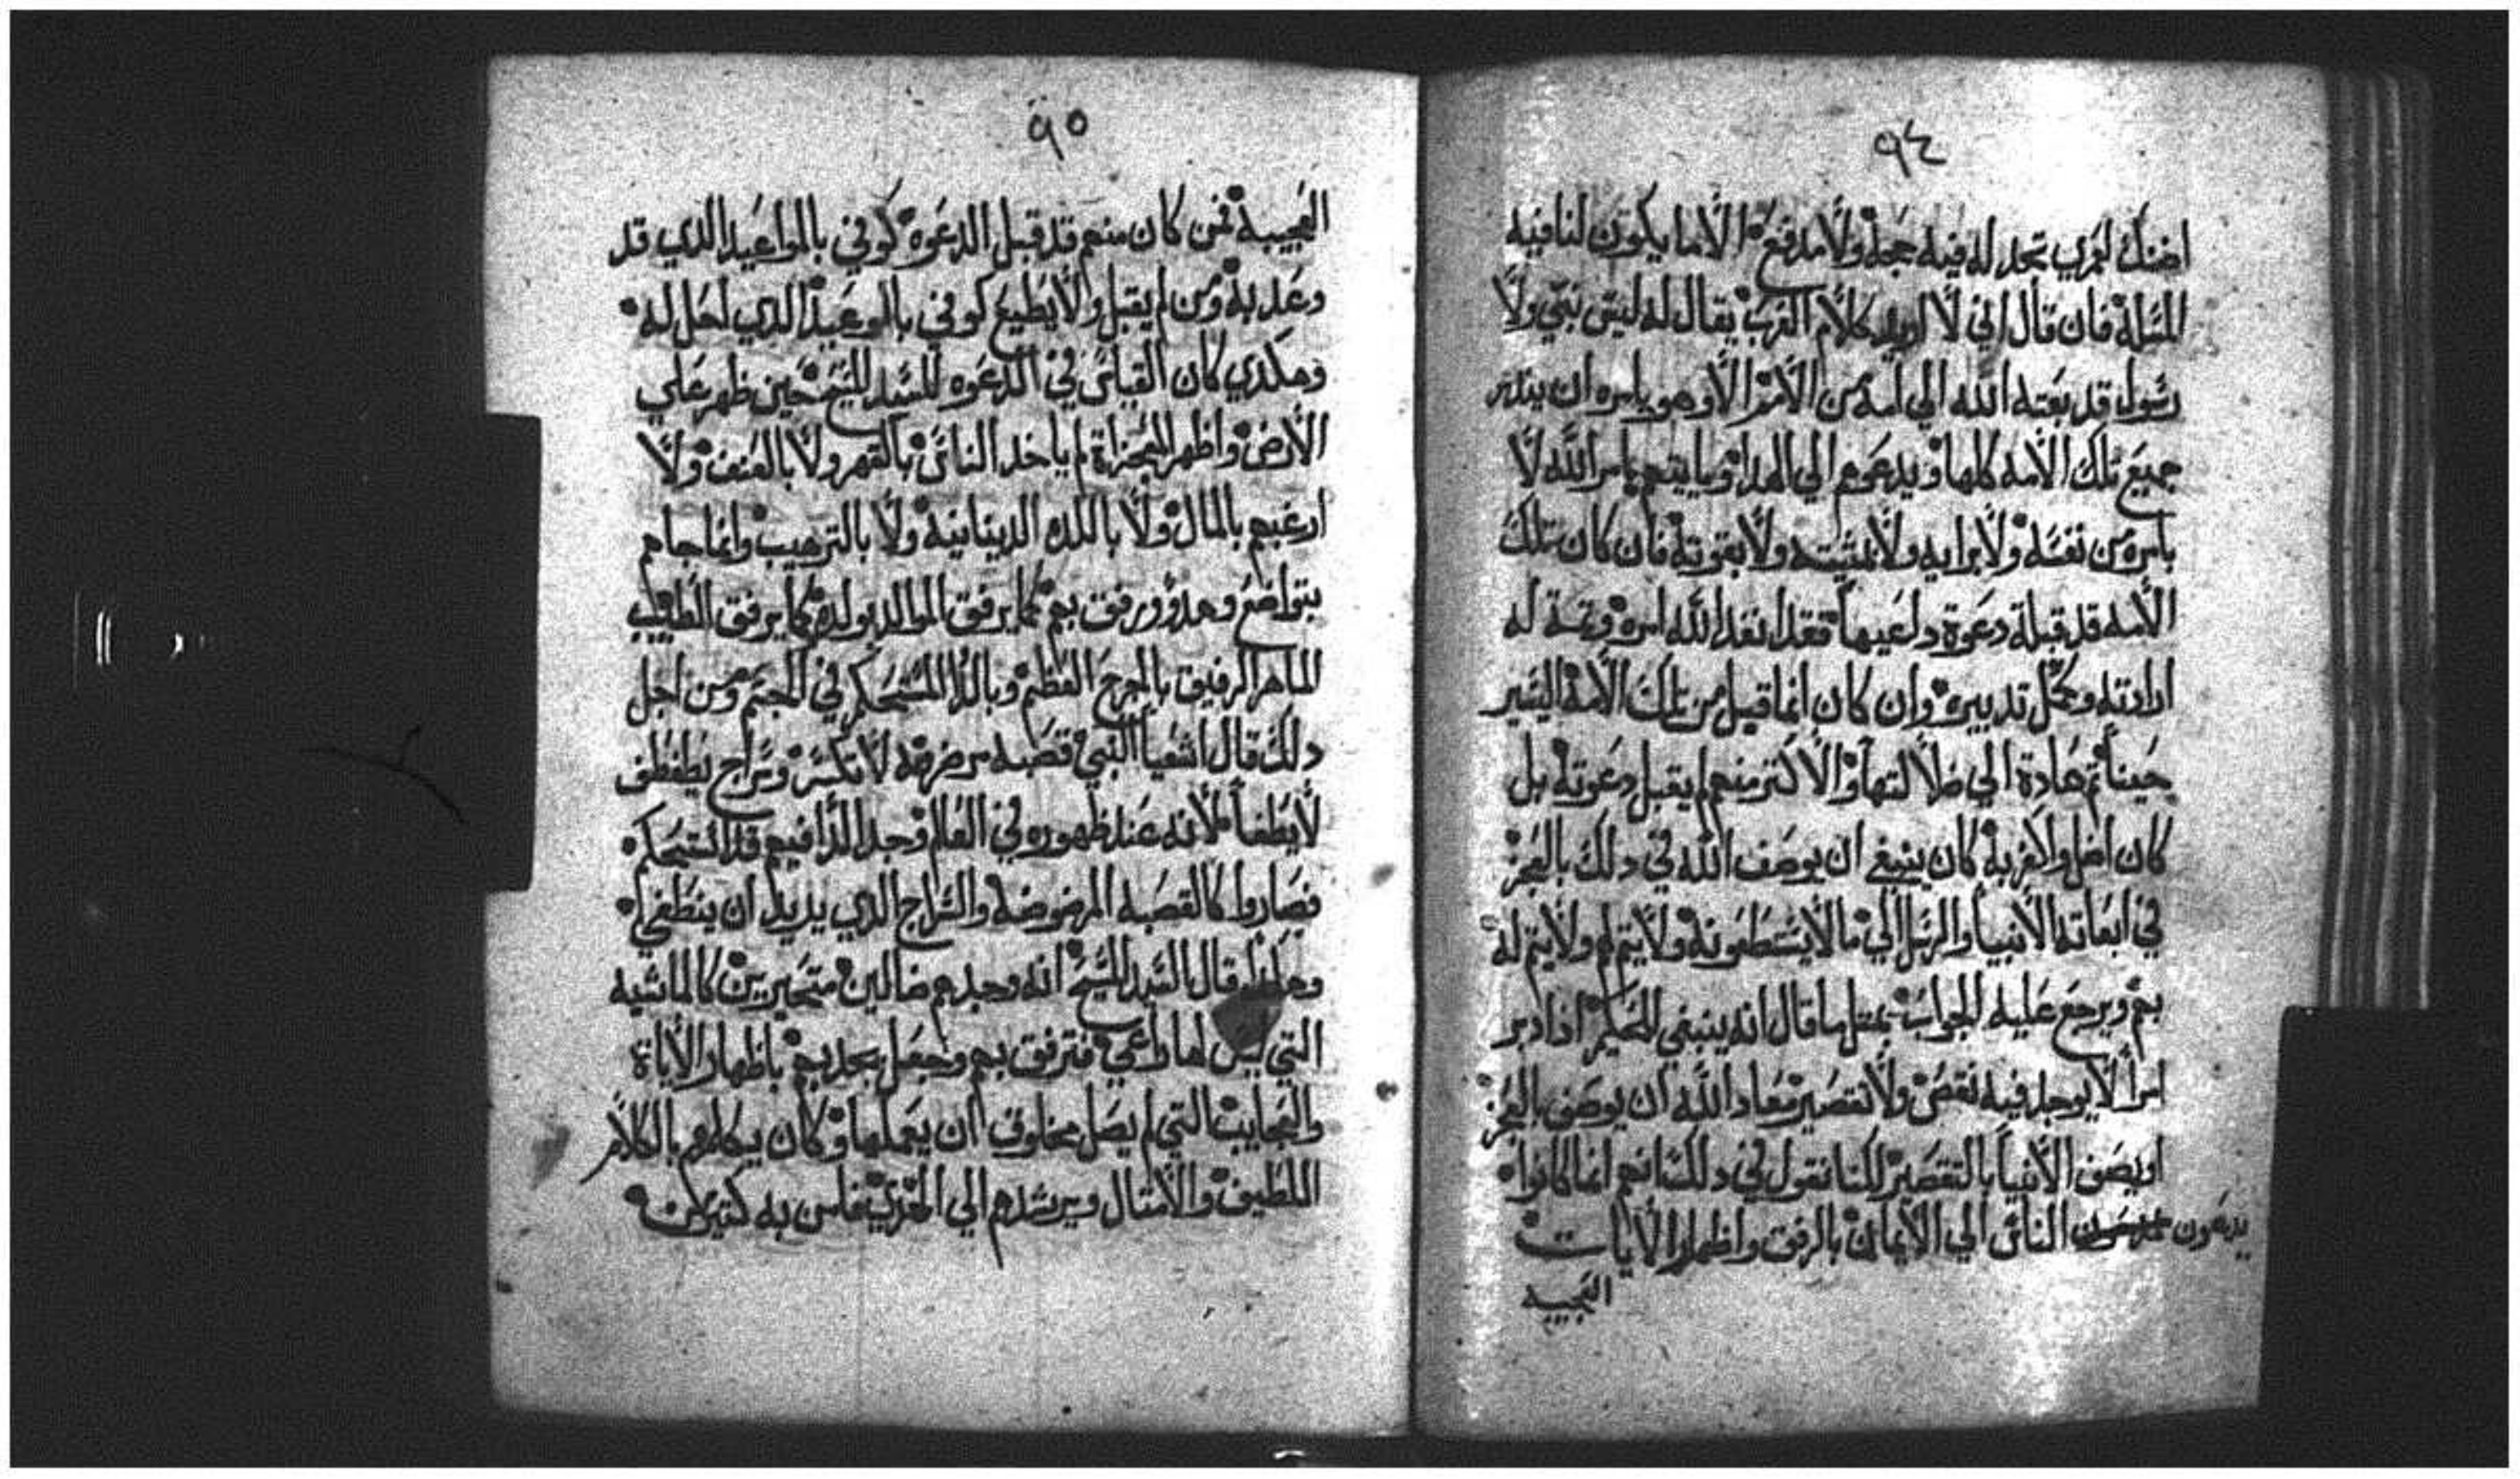 ٩٤
اضنك لعمري تجد له فيه حجه ولا مدفع الا ما يكون لنا فيه
المسله فان قال اني لا اريد كلام العرب يقال له ليس نبي ولا
رسول قد بعته الله الي امه من الامم الا وهو يامره ان ينذر
جميع تلك الامه كلها ويدعوهم الي الهدا ويايتهم بامر الله لا
بامره من نفسه ولا برايه ولا بمشيته ولا بقوته فان كان تلك
الامه قد قبلة دعوة داعيها فقد انفد الله امره وتمة له
ارادته وكمل تدبيره وان كان انما قبل من تلك الامه اليسير
حينا تم عادة الي ضلالتها والاكتر منهم لم يقبل دعوته بل
كان اضل والعز به كان ينبغي ان يوصف الله في دلك بالعجز
في ابعاته الانبيا والرسل الي ما لا يستطعونه ولا يتم لهم ولا يتم له
بهم ويرجع عليه الجواب بمتل ما قال انه ينبغي للحكيم ادا دبر
امرا لا يوجد فيه نقص ولا تقصير معاد الله ان يوصف بالعجز
او يصف الانبيا بالتقصير لكنا نقول في دلك انهم انما كانوا
يدعون الناس الي الايمان بالرفق واظهار الايات
العجيبه
٩٥
العجيبة فمن كان منهم قد قبل الدعوه كوفي بالمواعيد الذي قد
وعد به ومن لم يقبل ولا يطيع كوفي بالوعيد الذي احل له
وهكدي كان القياس في الدعوه للسيد المسيح حين ظهر علي
الارض واظهر المعجزاة لم ياخد الناس بالقهر ولا بالعنف ولا
ارغبهم بالمال ولا باللده الدنيانية ولا بالترهيب وانما جاهم
بتواضع وهدؤ ورفق بهم كما يرفق الوالد بولده وكما يرفق الطبيب
الماهر الرفيق بالجرح العظيم وبالدا المستحكم في الجسم ومن اجل
دلك قال اشعيا النبي قصبه مرضوضه لا تكسر وسراج يطفطف
لا يطفا لانه عند ظهوره في العالم وجد الدا فيهم قد استحكم
فصاروا كالقصبه المرضوضه والسراج الدي يريد ان ينطفي
وهكدا قال السيد المسيح انه وجدهم ضالين متحيرين كالماشيه
التي ليس لها راعي فترفق بهم وجعل يجدبهم باظهار الاياة
والعجايب التي لم يصل مخلوق ان يعملها وكان يكلمهم بالكلام
اللطيف والامتال ويرشدهم الي الحق فامن به كتير من